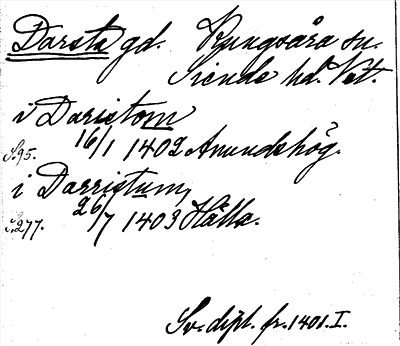 Darsta gd. Kungsåra sn.
Siende hd. Vst.
i Daristom
S. 95. 16/1 1402 Amundshög.
i Darristum,
S. 277. 26/7 1403 Hälla.
Sv. dipl. fr. 1401. I.